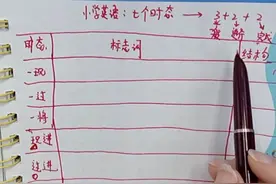 小学英语:七个时态 → 3+2+2
时态 标志词 结构句
一现
一过
一将
现进
过进